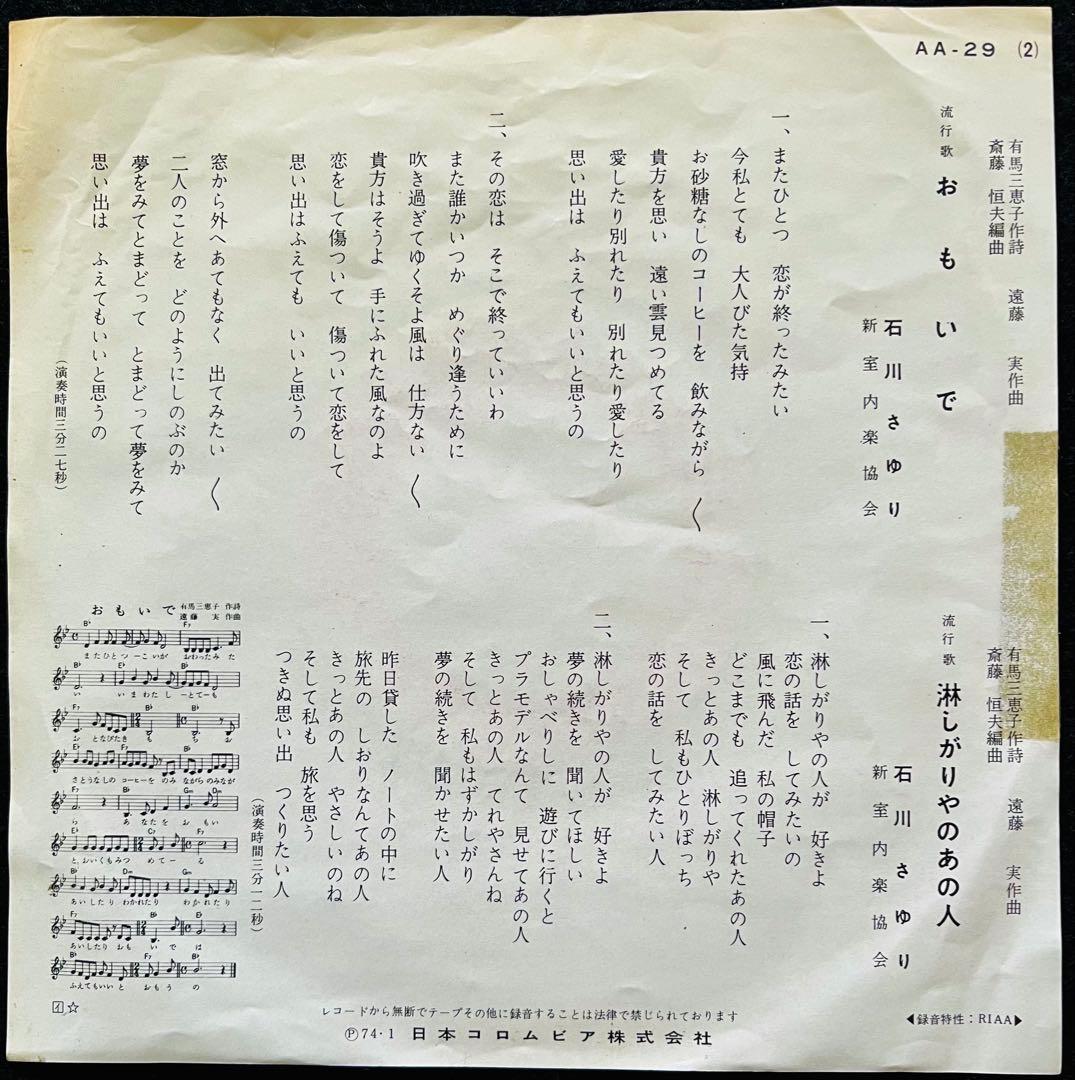 AA-29 (2)
有馬三恵子作詩 遠藤 実作曲
斎藤 恒夫編曲
流行歌 おもいで
石川さゆり
新室内楽協会
一、またひとつ 恋が終ったみたい
今私とても 大人びた気持
お砂糖なしのコーヒーを 飲みながら 〱
貴方を思い 遠い雲見つめてる
愛したり別れたり 別れたり愛したり
思い出は ふえてもいいと思うの
二、その恋は そこで終っていいわ
また誰かいつか めぐり逢うために
吹き過ぎてゆくそよ風は 仕方ない 〱
貴方はそうよ 手にふれた風なのよ
恋をして傷ついて 傷ついて恋をして
思い出はふえても いいと思うの
窓から外へあてもなく 出てみたい 〱
二人のことを どのようにしのぶのか
夢をみてとまどって とまどって夢をみて
思い出は ふえてもいいと思うの
(演奏時間三分二七秒)
有馬三恵子作詩 遠藤 実作曲
斎藤 恒夫編曲
流行歌 淋しがりやのあの人
石川さゆり
新室内楽協会
一、淋しがりやの人が 好きよ
恋の話を してみたいの
風に飛んだ 私の帽子
どこまでも 追ってくれたあの人
きっとあの人 淋しがりや
そして 私もひとりぼっち
恋の話を してみたい人
二、淋しがりやの人が 好きよ
夢の続きを 聞いてほしい
おしゃべりしに 遊びに行くと
プラモデルなんて 見せてあの人
きっとあの人 てれやさんね
そして 私もはずかしがり
夢の続きを 聞かせたい人
昨日貸した ノートの中に
旅先の しおりなんてあの人
きっとあの人 やさしいのね
そして私も 旅を思う
つきぬ思い出 つくりたい人
(演奏時間三分一二秒)
おもいで 有馬三恵子 作詩
遠藤 実 作曲
B♭ F7
またひとつーこいが おわったみた
B♭ E♭ B♭
い いまわたしーとてーも
F7 B♭
おとなびたき もち お
E♭ F7 B♭
さとうなしの コーヒーを のみ ながらのみなが
F7 B♭ Gm Dm
ら あなたを おもい
E♭ C7 F7
とおいくもみつ めてーる
B♭ Dm Gm
あいしたり わかれたり わかれたり
E♭ F7 B♭
あいしたり おもいでは
B♭ F7 B♭
ふえてもいいと おもうの
イ☆
レコードから無断でテープその他に録音することは法律で禁じられております
Ⓟ74・1 日本コロムビア株式会社
◀録音特性：RIAA▶